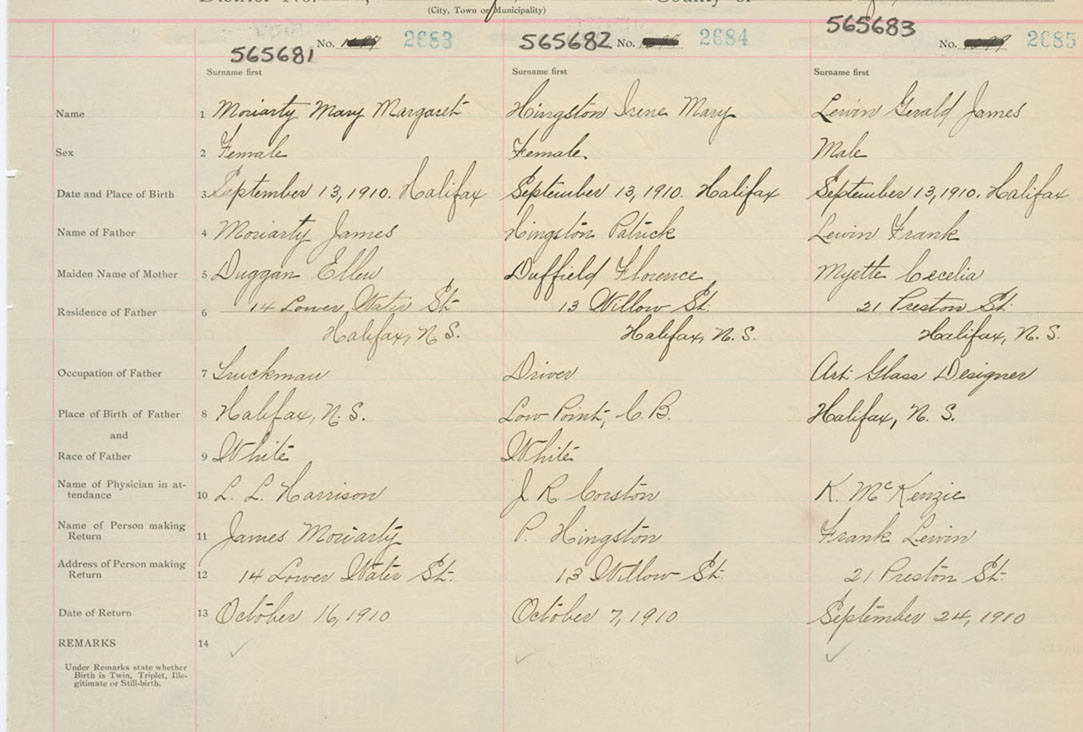 District No. County of
(City, Town or Municipality)
565681 No. 2683 565682 No. 2684 565683 No. 2685
Surname first Surname first Surname first
Name 1 Moriarty Mary Margaret Hingston Irene Mary Lewin Gerald James
Sex 2 Female Female Male
Date and Place of Birth 3 September 13, 1910. Halifax September 13, 1910. Halifax September 13, 1910. Halifax
Name of Father 4 Moriarty James Hingston Patrick Lewin Frank
Maiden Name of Mother 5 Duggan Ellen Duffield Florence Myette Cecelia
Residence of Father 6 14 Lower Water St. 13 Willow St. 21 Preston St.
Halifax, N.S. Halifax, N.S. Halifax, N.S.
Occupation of Father 7 Truckman Driver Art Glass Designer
Place of Birth of Father 8 Halifax, N.S. Low Point, C.B. Halifax, N.S.
and
Race of Father 9 White White
Name of Physician in at-
tendance 10 L. L. Harrison J R Corston K. McKenzie
Name of Person making
Return 11 James Moriarty P. Hingston Frank Lewin
Address of Person making
Return 12 14 Lower Water St. 13 Willow St. 21 Preston St.
Date of Return 13 October 16, 1910 October 7, 1910 September 24, 1910
REMARKS 14
Under Remarks state whether
Birth is Twin, Triplet, Ille-
gitimate or Still-birth.